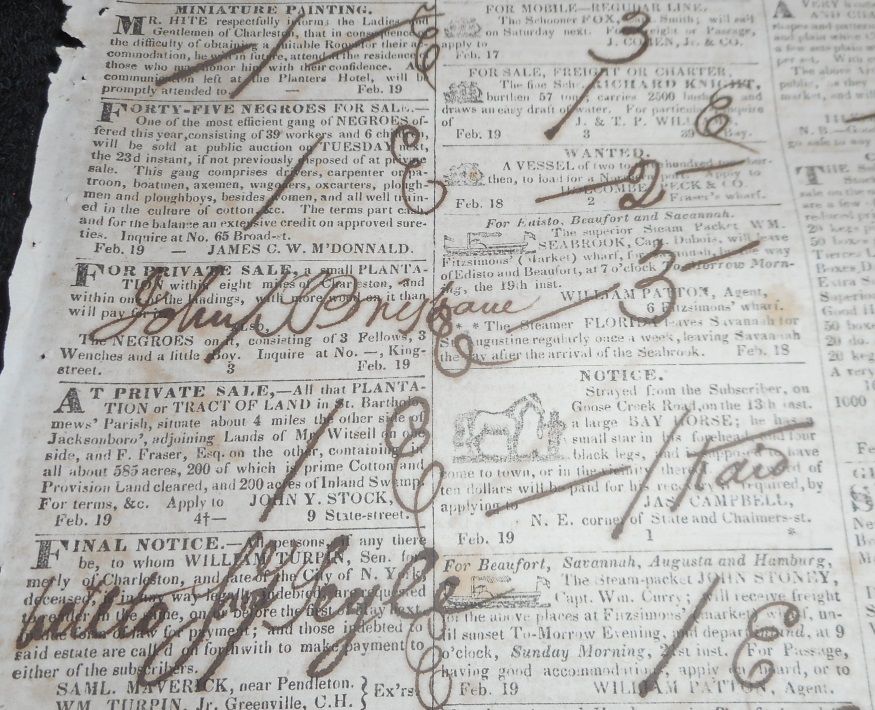 MINIATURE PAINTING.
MR. HITE respectfully informs the Ladies and
Gentlemen of Charleston, that in consequence of
the difficulty of obtaining a suitable Room for their ac-
commodation, he will in future, attend at the residence
those who may honor him with their confidence.
communication left at the Planters Hotel, will be
promptly attended to. — Feb. 19
FORTY-FIVE NEGROES FOR SALE.—
One of the most efficient gang of NEGROES of-
fered this year, consisting of 39 workers and 6 children,
will be sold at public auction on TUESDAY next,
the 23d instant, if not previously disposed of at private
sale. This gang comprises drivers, carpenter or pa-
troon, boatmen, axemen, wagoners, oxcarters, plough-
men and ploughboys, besides women, and all well train-
ed in the culture of cotton &c. The terms part cash
and for the balance an extensive credit on approved sure-
ties. Inquire at No. 65 Broad-st.
Feb. 19 — JAMES C. W. M'DONNALD.
FOR PRIVATE SALE, a small PLANTA-
TION within eight miles of Charleston, and
within one of the landings, with more wood on it than
will pay for it.
Also,
The NEGROES on it, consisting of 3 Fellows, 3
Wenches and a little Boy. Inquire at No. —, King-
street. 3 Feb. 19
AT PRIVATE SALE,—All that PLANTA-
TION or TRACT OF LAND in St. Bartholo-
mews' Parish, situate about 4 miles the other side of
Jacksonboro', adjoining Lands of Mr. Witsell on one
side, and F. Fraser, Esq. on the other, containing in
all about 585 acres, 200 of which is prime Cotton and
Provision Land cleared, and 200 acres of Inland Swamp.
For terms, &c. Apply to JOHN Y. STOCK,
Feb. 19 4†— 9 State-street.
FINAL NOTICE.—All persons, if any there
be, to whom WILLIAM TURPIN, Sen. for-
merly of Charleston, and late of the City of N. York,
deceased, in any way legally indebted are requested
to render in the same, on or before the first of May next
for payment; and those indebted to
said estate are called on forthwith to make payment to
either of the subscribers.
SAML. MAVERICK, near Pendleton. } Ex'rs.
WM. TURPIN, Jr. Greenville, C.H.
FOR MOBILE—REGULAR LINE.
The Schooner FOX, Smith; will sail
on Saturday next. For Freight or Passage,
apply to J. COHEN, Jr. & CO.
Feb. 17 3
FOR SALE, FREIGHT OR CHARTER.
The fine Schr. RICHARD KNIGHT,
burthen 57 tons, carries 2500 and
draws an easy draft of water. For particulars inquire
of J. & T. P.
Feb. 19 3
WANTED.
A VESSEL of two to hundred
then, to load for a Northern port. Apply to
HOLCOMBE, PECK & CO.
Feb. 18 2 Fraser's wharf.
For Edisto, Beaufort and Savannah.
The superior Steam Packet WM.
SEABROOK, Capt. Dubois, will leave
Fitzsimons' (Market) wharf, for Savannah, by way
of Edisto and Beaufort, at 7 o'clock To-morrow Morn-
ing, the 19th inst.
WILLIAM PATTON, Agent,
6 Fitzsimons' wharf.
*** The Steamer FLORIDA leaves Savannah for
St. Augustine regularly once a week, leaving Savannah
the day after the arrival of the Seabrook. Feb. 18
NOTICE.
Strayed from the Subscriber, on
Goose Creek Road, on the 13th inst.
a large BAY HORSE; he has a
small star in his forehead and four
black legs, and is supposed to have
come to town, or in the vicinity thereof. of
ten dollars will be paid for his recovery if required, by
applying to JAS. CAMPBELL,
N. E. corner of State and Chalmers-st.
Feb. 19 1 *
For Beaufort, Savannah, Augusta and Hamburg,
The Steam-packet JOHN STONEY,
Capt. Wm. Curry; will receive freight
for the above places at Fitzsimons' (market) wharf, un-
til sunset To-Morrow Evening, and depart at 9
o'clock, Sunday Morning, 21st inst. For Passage,
having good accommodations, apply on board, or to
Feb. 19 WILLIAM PATTON, Agent.
3
2
3
1 Paid
1